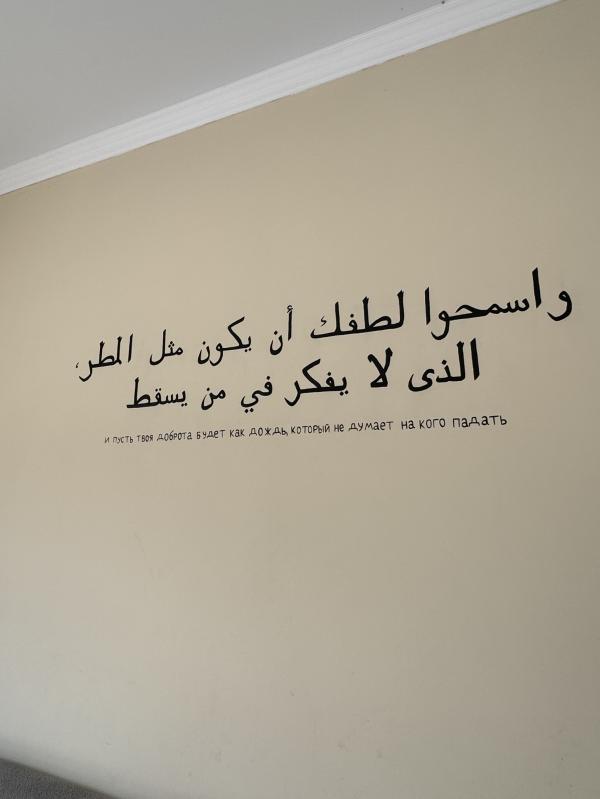 واسمحوا لطفك أن يكون مثل المطر،
الذى لا يفكر في من يسقط
и пусть твоя доброта будет как дождь, который не думает на кого падать